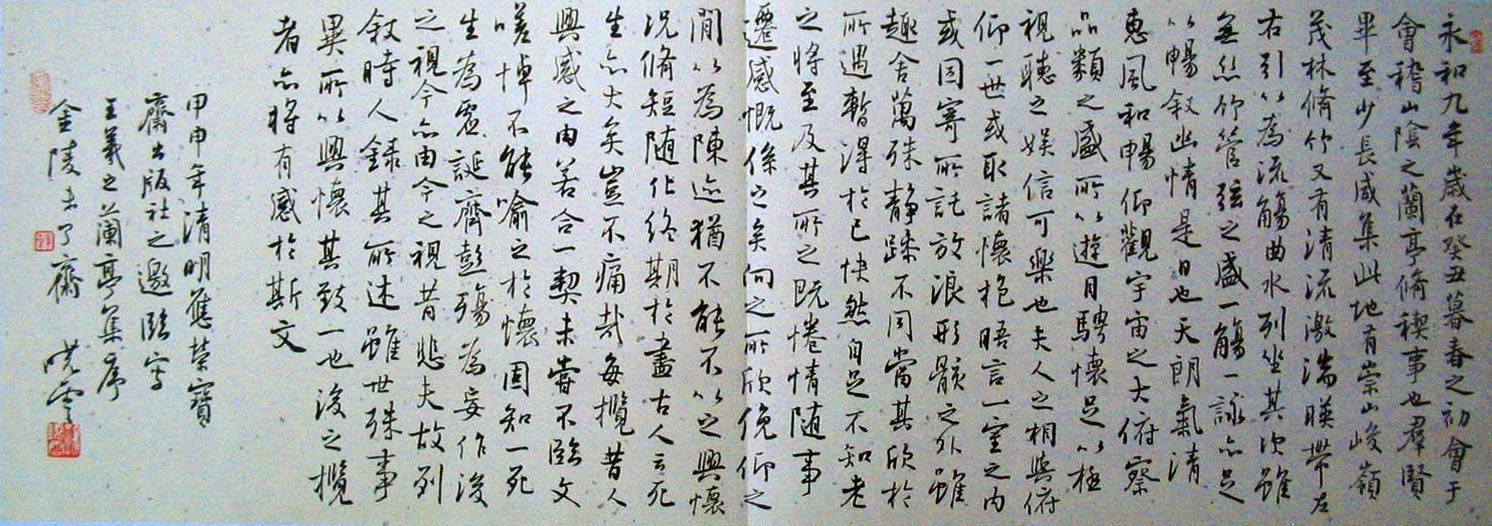 永和九年歲在癸丑暮春之初會于
會稽山陰之蘭亭脩稧事也羣賢
畢至少長咸集此地有崇山峻嶺
茂林脩竹又有清流激湍暎帶左
右引以為流觴曲水列坐其次雖
無絲竹管弦之盛一觴一詠亦足
以暢叙幽情是日也天朗氣清
惠風和暢仰觀宇宙之大俯察
品類之盛所以遊目騁懷足以極
視聽之娛信可樂也夫人之相與俯
仰一世或取諸懷抱晤言一室之內
或因寄所託放浪形骸之外雖
趣舍萬殊静躁不同當其欣於
所遇暫得於己快然自足不知老
之將至及其所之既惓情隨事
遷感慨係之矣向之所欣俛仰之
間以為陳迹猶不能不以之興懷
況脩短随化終期於盡古人云死
生亦大矣豈不痛哉每攬昔人
興感之由若合一契未嘗不臨文
嗟悼不能喻之於懷固知一死
生為虛誕齊彭殤為妄作後
之視今亦由今之視昔悲夫故列
叙時人錄其所述雖世殊事
異所以興懷其致一也後之攬
者亦將有感於斯文
甲申年清明應榮寶
齋出版社之邀臨寫
王羲之蘭亭集序
金陵未了齋 曉雲